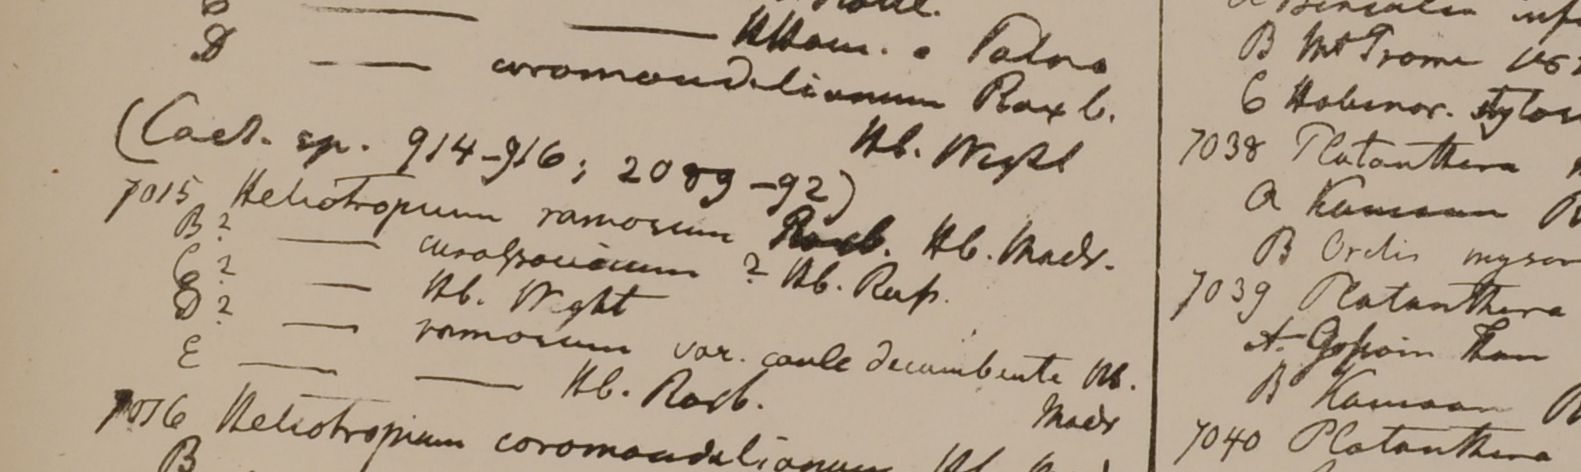 D — — HHam. e Patna
— coromandelianum Roxb.
Hb. Wight
(Caet. sp. 914-916; 2089-92)
7015 Heliotropium ramosum Roxb. Hb. Madr.
B? — ? Hb. Rup.
C? — Hb. Wight
D? — ramosum var. caule decumbente Hb. Madr
E — — Hb. Roxb.
7016 Heliotropium coromandelianum Hb.
B
B Mt Prome
C Habenar.
7038 Platanthera
A Kamaon
B Orchis mysor
7039 Platanthera
A. Gossain Than
B Kamaon
7040 Platanthera